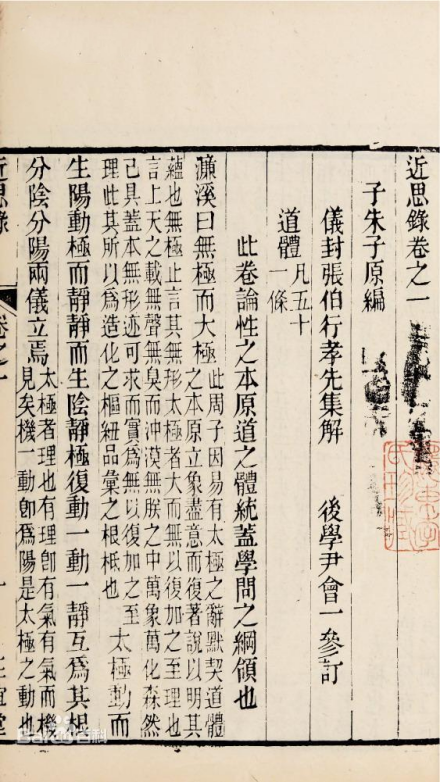 近思錄卷之一
子朱子原編
儀封張伯行孝先集解　後學尹會一參訂
道體凡五十一條
此卷論性之本原道之體統蓋學問之綱領也
濂溪曰無極而大極此周子因易有太極之辭默契道體
之本原立象盡意而復著說以明其
蘊也無極止言其無形太極者大而無以復加之至理也
言上天之載無聲無臭而沖漠無朕之中萬象萬化森然
已具蓋本無形迹可求而實爲無以復加之至
理此其所以爲造化之樞紐品彙之根柢也
太極動而
生陽動極而靜靜而生陰靜極復動一動一靜互爲其根
分陰分陽兩儀立焉太極者理也有理卽有氣有氣而機
見矣機一動卽爲陽是太極之動也
近思錄 卷之一 一 正誼堂
Baidu百科